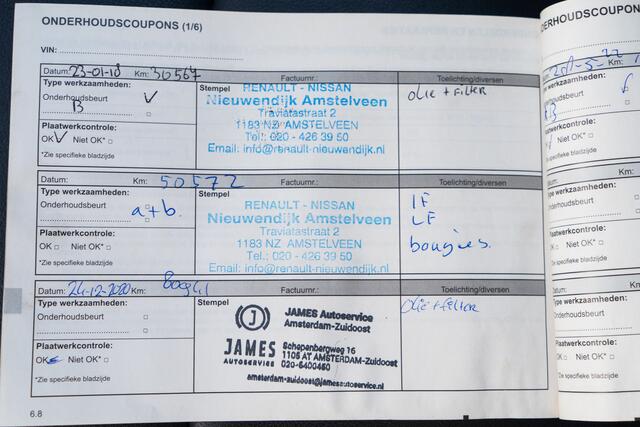 ONDERHOUDSCOUPONS (1/6)
VIN:
Datum: 23-01-18 Km: 30567 Factuurnr.: Toelichting/diversen
Type werkzaamheden:
Onderhoudsbeurt √
B
Plaatwerkcontrole:
OK √ Niet OK* □
*Zie specifieke bladzijde
Stempel
RENAULT - NISSAN
Nieuwendijk Amstelveen
Traviatastraat 2
1183 NZ AMSTELVEEN
Tel.: 020 - 426 39 50
Email: info@renault-nieuwendijk.nl
olie + Filter
Datum: Km: 50572 Factuurnr.: Toelichting/diversen
Type werkzaamheden:
Onderhoudsbeurt □
a+b.
Plaatwerkcontrole:
OK □ Niet OK* □
*Zie specifieke bladzijde
Stempel
RENAULT - NISSAN
Nieuwendijk Amstelveen
Traviatastraat 2
1183 NZ AMSTELVEEN
Tel.: 020 - 426 39 50
Email: info@renault-nieuwendijk.nl
IF
LF
bougies.
Datum: 24-12-2020 Km: Factuurnr.: Toelichting/diversen
Type werkzaamheden:
Onderhoudsbeurt □
Plaatwerkcontrole:
OK Niet OK* □
*Zie specifieke bladzijde
Stempel
JAMES Autoservice
Amsterdam-Zuidoost
JAMES
AUTOSERVICE
Schepenbergweg 16
1105 AT AMSTERDAM-Zuidoost
020-6400450
amsterdam-zuidoost@jamesautoservice.nl
olie + filter
6.8
ONDERHOUDSCOUPONS
VIN:
Datum:
Type werkzaamheden:
Onderhoudsbeurt
B
Plaatwerkcontrole:
Niet OK* □
*Zie specifieke bladzijde
Datum:
Type werkzaamheden:
Onderhoudsbeurt
Plaatwerkcontrole:
OK □ Niet OK* □
*Zie specifieke bladzijde
Datum:
Type werkzaamheden:
Onderhoudsbeurt
Plaatwerkcontrole:
OK □ Niet OK* □
*Zie specifieke bladzijde